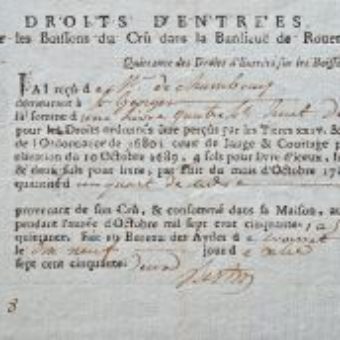 DROITS D'ENTRÉES,
les Boissons du Crû dans la Banlieuë de Rouen
Quittance des Droits d'Entrées sur les Boiss
J'AI reçû de M. de
demeurant à St
la somme de une livre quatre huit de
pour les Droits ordonnés être perçus par les Titres XXIV. &
de l'Ordonnance de 1680; ceux de Jauge & Courtage p
claration du 10 Octobre 1689, 4 sols pour livre d'iceux, l
& deux sols pour livre, par l'Edit du mois d'Octobre 17
quantité d un quart de cidre
provenant de son Crû, & consommé dans sa Maison, au
pendant l'année d'Octobre mil sept cent cinquante
quittance. Fait au Bureau des Aydes d
le dix neuf jour d
sept cent cinquante deux
8